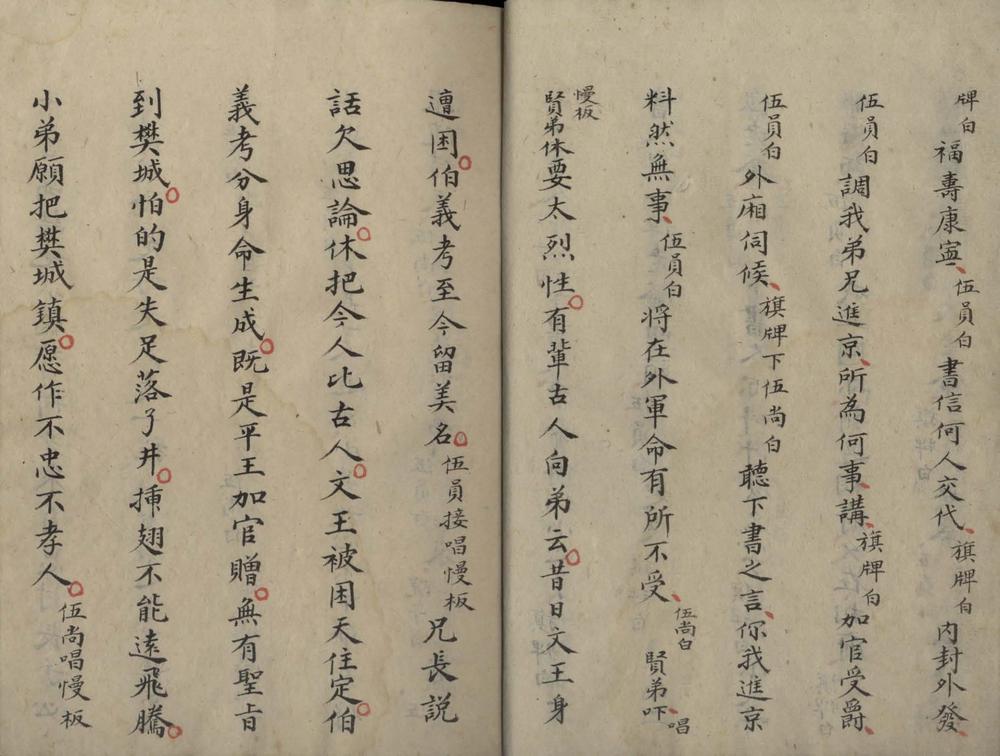 牌白福壽康寧、伍員白書信何人交代、旗牌白内封外發、
伍員白調我弟兄進京、所為何事、講、旗牌白加官受爵、
伍員白外廂伺候、旗牌下伍尚白聽下書之言、你我進京
料然無事、伍員白將在外軍命有所不受、伍尚白賢弟吓、唱
慢板賢弟休要太烈性。有輩古人向弟云。昔日文王身
遭困。伯義考至今留美名。伍員接唱慢板兄長説
話欠思論。休把今人比古人。文王被困天住定。伯
義考分身命生成。既是平王加官贈。無有聖旨
到樊城。怕的是失足落了井。插翅不能遠飛騰。
小弟願把樊城鎮。愿作不忠不孝人。伍尚唱慢板